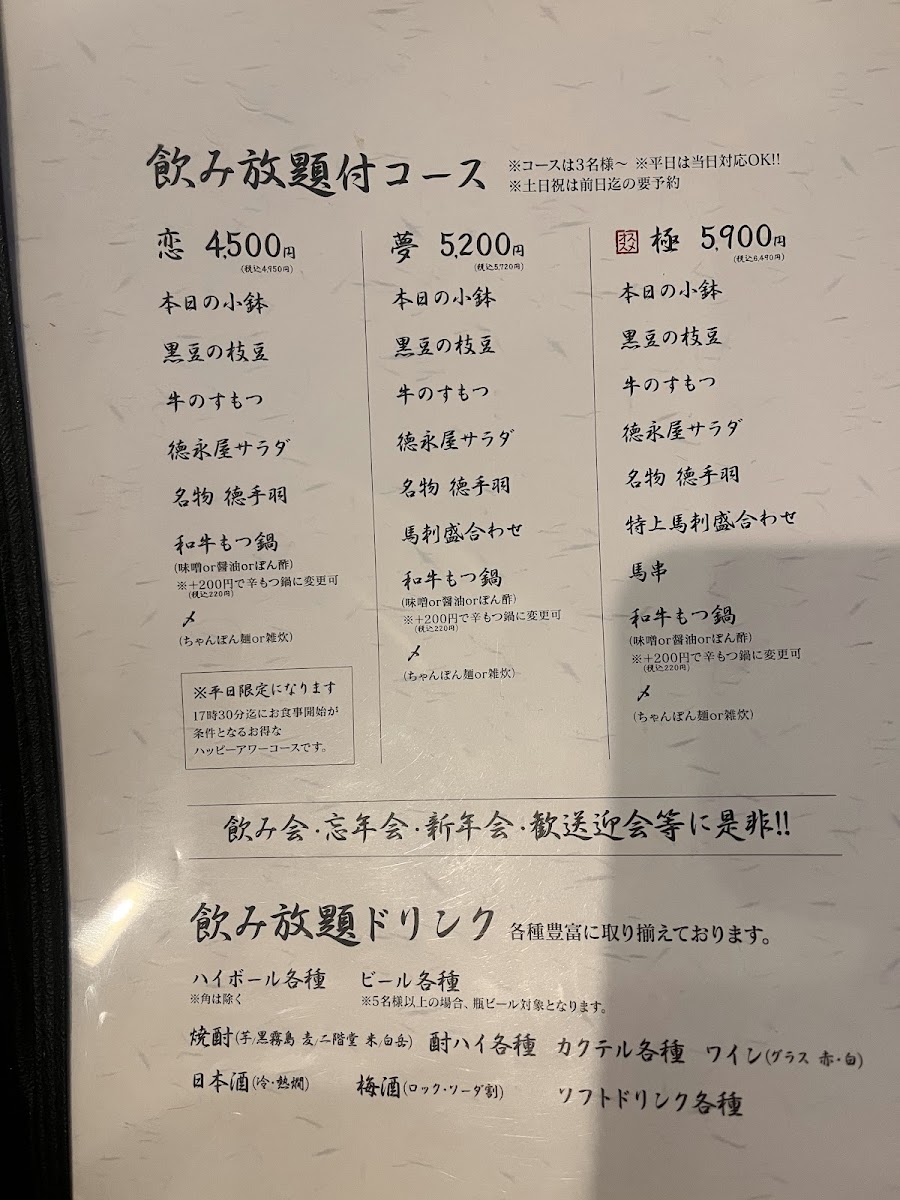 飲み放題付コース
※コースは3名様～ ※平日は当日対応OK!!
※土日祝は前日迄の要予約
恋 4,500円
(税込4,950円)
本日の小鉢
黒豆の枝豆
牛のすもつ
徳永屋サラダ
名物 徳手羽
和牛もつ鍋
(味噌or醤油orぽん酢)
※+200円で辛もつ鍋に変更可
(税込220円)
〆
(ちゃんぽん麺or雑炊)
※平日限定になります
17時30分迄にお食事開始が
条件となるお得な
ハッピーアワーコースです。
夢 5,200円
(税込5,720円)
本日の小鉢
黒豆の枝豆
牛のすもつ
徳永屋サラダ
名物 徳手羽
馬刺盛合わせ
和牛もつ鍋
(味噌or醤油orぽん酢)
※+200円で辛もつ鍋に変更可
(税込220円)
〆
(ちゃんぽん麺or雑炊)
オススメ 極 5,900円
(税込6,490円)
本日の小鉢
黒豆の枝豆
牛のすもつ
徳永屋サラダ
名物 徳手羽
特上馬刺盛合わせ
馬串
和牛もつ鍋
(味噌or醤油orぽん酢)
※+200円で辛もつ鍋に変更可
(税込220円)
〆
(ちゃんぽん麺or雑炊)
飲み会・忘年会・新年会・歓送迎会等に是非!!
飲み放題ドリンク 各種豊富に取り揃えております。
ハイボール各種 ビール各種
※角は除く ※5名様以上の場合、瓶ビール対象となります。
焼酎(芋/黒霧島 麦/二階堂 米/白岳) 酎ハイ各種 カクテル各種 ワイン(グラス 赤・白)
日本酒(冷・熱燗) 梅酒(ロック・ソーダ割) ソフトドリンク各種